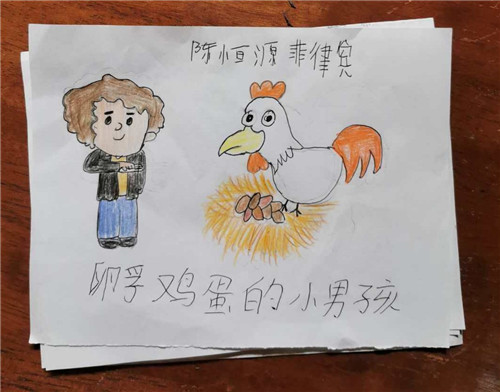 陈恒源 菲律宾
孵鸡蛋的小男孩